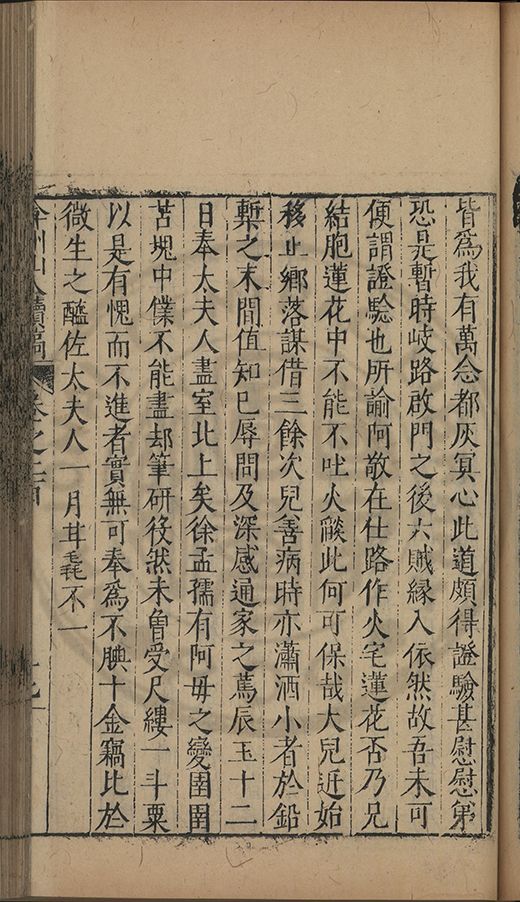 皆為我有萬念都灰冥心此道頗得證驗甚慰慰第
恐是暫時岐路啟門之後六賊緣入依然故吾未可
便謂證驗也所諭阿敬在仕路作火宅蓮花否乃兄
結胞蓮花中不能不吐火燄此何可保哉大兒近始
移止鄉落謀借三餘次兒善病時亦瀟洒小者於鉛
槧之末間值知已辱問及深感通家之蔫辰玉十二
日奉太夫人盡室北上矣徐孟孺有阿毋之變圉圉
苫塊中僕不能盡却筆研役然未曾受尺縷一斗粟
以是有愧而不進者實無可奉為不腆十金竊比於
微生之醯佐太夫人一月耳毳不一
山人續稿 卷之